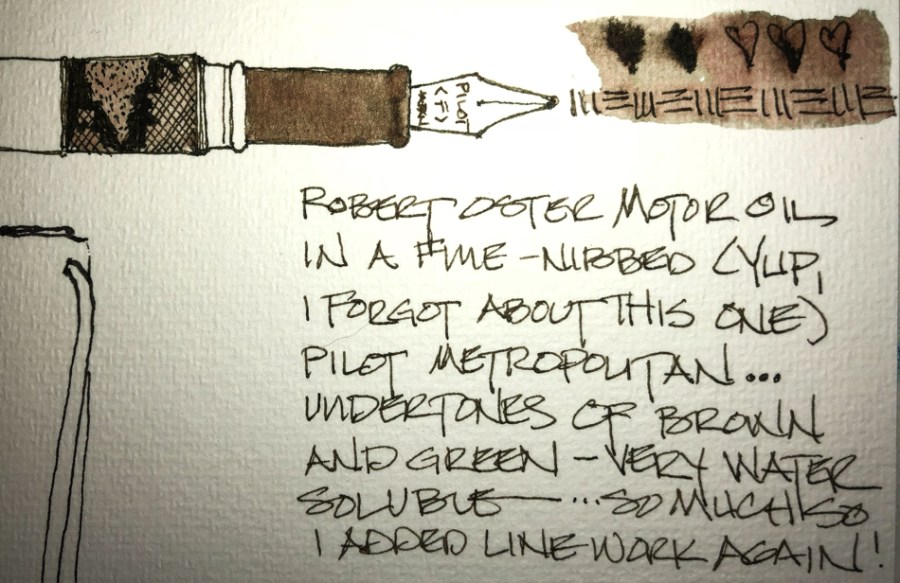 PILOT
<F>
JAPAN
ROBERT OSTER MOTOR OIL
IN A FINE-NIBBED (YUP,
I FORGOT ABOUT THIS ONE)
PILOT METROPOLITAN...
UNDERTONES OF BROWN
AND GREEN - VERY WATER
SOLUBLE — ...SO MUCH SO
I ADDED LINEWORK AGAIN!